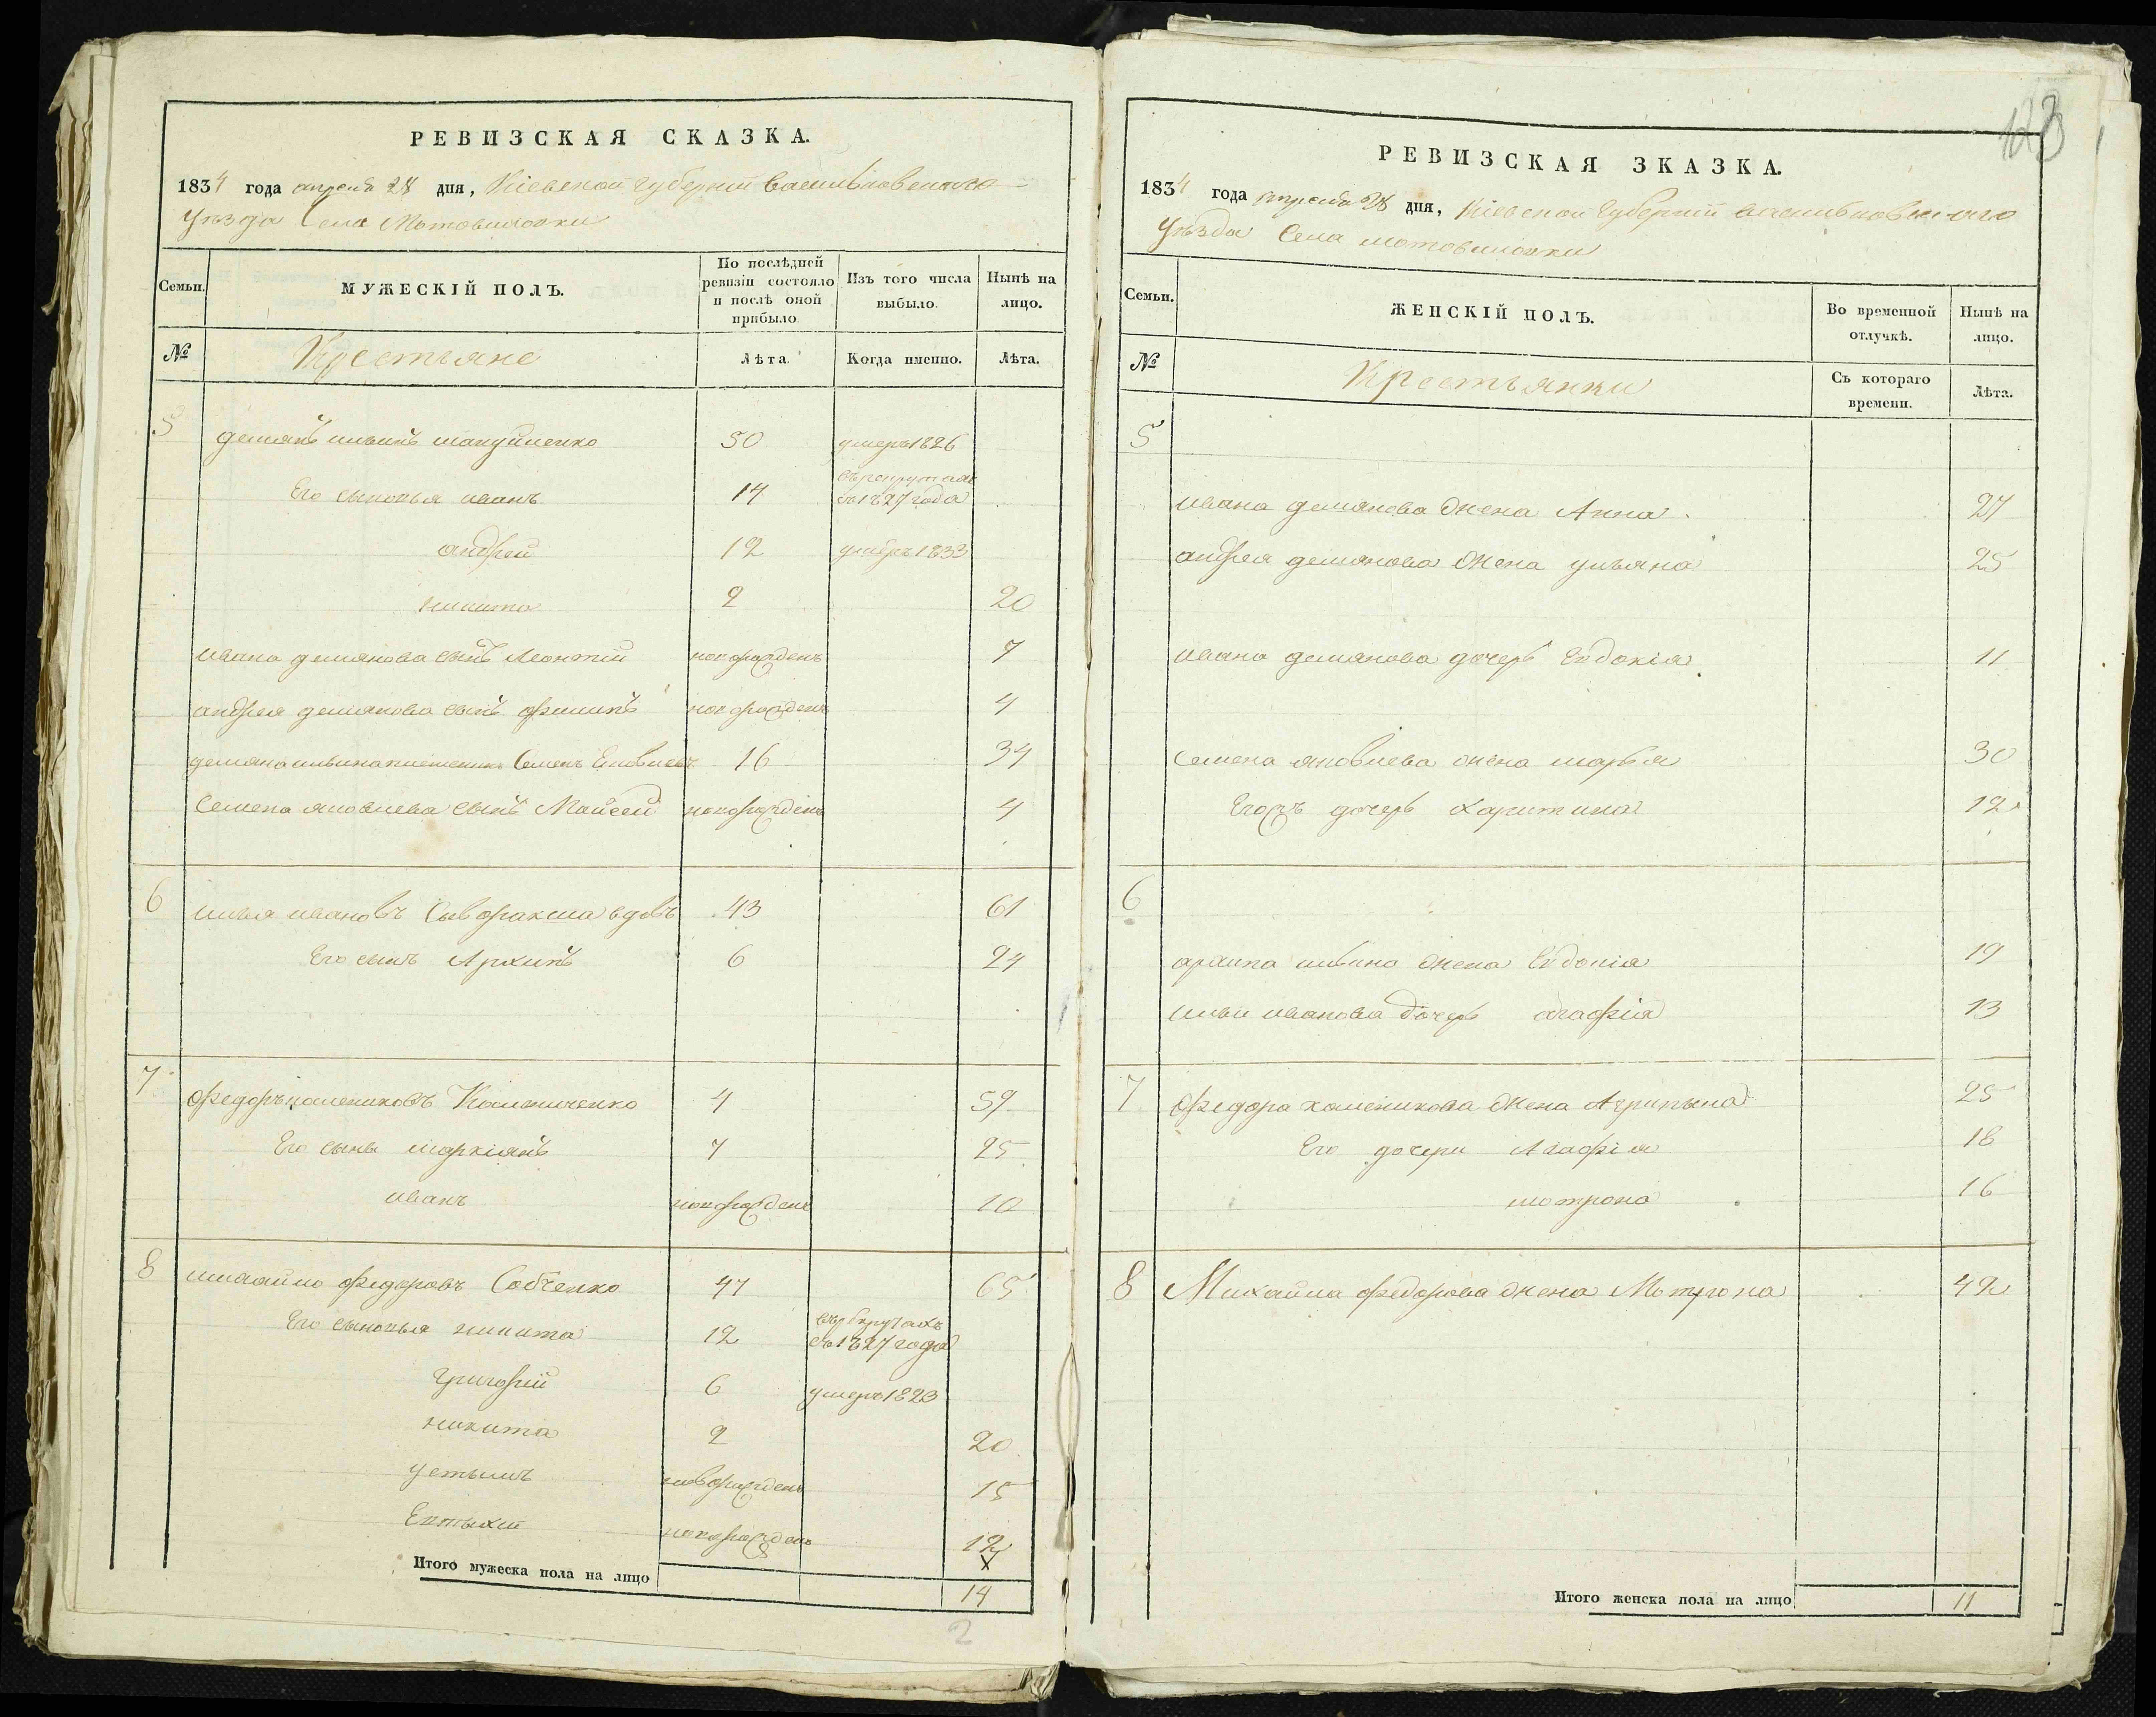 РЕВИЗСКАЯ СКАЗКА.
1834 года апреля 28 дня, Кіевской губерніи Васильковскаго
уѣзда Села Мотовиловки
Семьи. МУЖЕСКІЙ ПОЛЪ. По послѣдней ревизіи состояло и послѣ оной прибыло Изъ того числа выбыло. Нынѣ на лицо.
№ Крестьяне Лѣта. Когда именно. Лѣта.
5 демянъ ильинъ мануйленко 50 умеръ 1826
Его сыновья иванъ 14 въ рекрутахъ съ 1827 года
андрей 12 умеръ 1833
никита 2 20
ивана демянова сынъ Леонтий новорожденъ 7
андрея демянова сынъ филипъ новорожденъ 4
демяна ильина племеникъ Семенъ 16 34
Семена яковлева сынъ Майсей новорожденъ 4
6 илья ивановъ Сыворакша вдовъ 43 61
Его сынъ Архипъ 6 24
7 федоръ 4 59
Его сыны маркіянъ 7 25
иванъ новорожденъ 10
8 михайло федоровъ Собченко 47 65
Его сыновья никита 12 въ рекрутахъ съ 1827 года
Григорій 6 умеръ 1823
никита 2 20
устымъ новорожденъ 15
Евтыхій новорожденъ 12
х
Итого мужеска пола на лицо 14
2
123
РЕВИЗСКАЯ ЗКАЗКА.
1834 года апреля 28 дня, Кіевской Губерніи васильковскаго
уѣзда Села мотовиловки
Семьи. ЖЕНСКІЙ ПОЛЪ. Во временной отлучкѣ. Нынѣ на лицо.
№ Крестьянки Съ котораго времени. Лѣта.
5
ивана демянова жена Анна. 27
андрея демянова жена ульяна 25
ивана демянова дочерь Евдокія. 11
Семена яковлева жена марья 30
Егожъ дочерь харитина 12
6
архипа ильина жена Евдокія 19
ильи иванова дочерь агафія 13
7 федора жена Агрипына 25
Его дочери Агафія 18
мотрона 16
8 Михайла федорова жена Мотрона 42
Итого женска пола на лицо 11